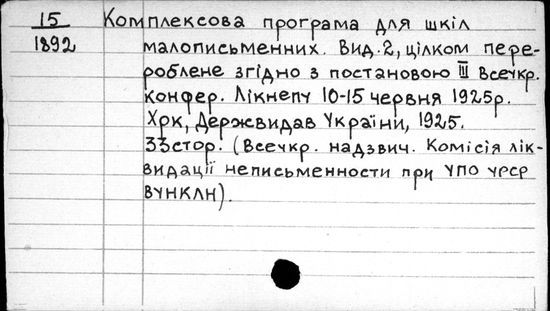 15
1892
Комплексова програма для шкіл
малописьменних. Вид. 2, цілком пере-
роблене згідно з постановою III Всеукр.
конфер. Лікнепу 10-15 червня 1925р.
Хрк, Держвидав України, 1925.
33стор. (Всеукр. надзвич. Комісія лік-
видації неписьменности при УПО УРСР
ВУНКЛН).